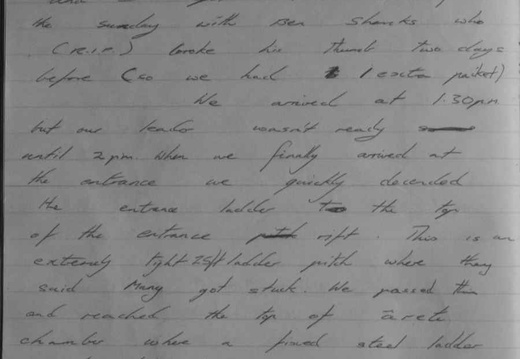 the sunday with Ben Shorcks who
(R.I.P.) broke his thumb two days
before (so we had 1 extra packet)
We arrived at 1.30pm
but our leader wasn't ready
until 2pm. When we finally arrived at
the entrance we quickly decended
the entrance ladder to the top
of the entrance rift. This is an
extremely tight 25ft ladder pitch where they
said Many got stuck. We passed this
and reached the top of arete
chamber where a fixed steel ladder